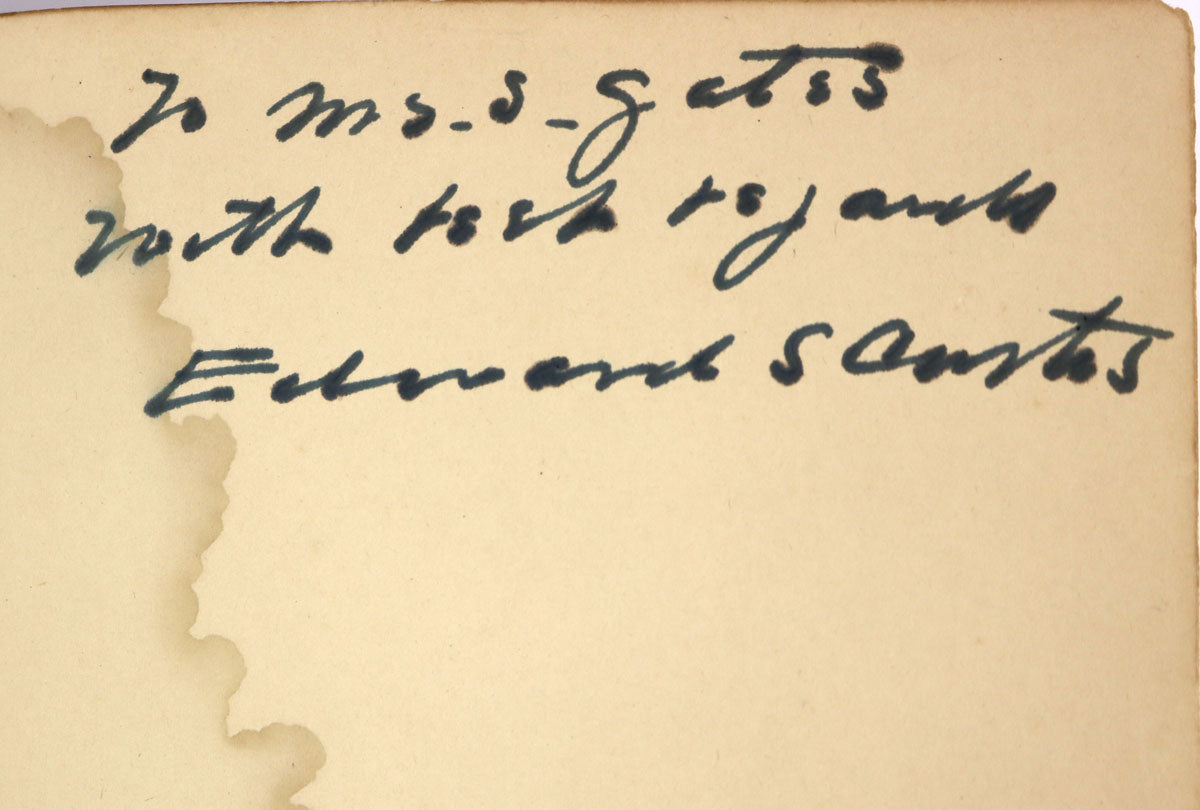 To Ms. S. Gates
With best regards
Edward S Curtis